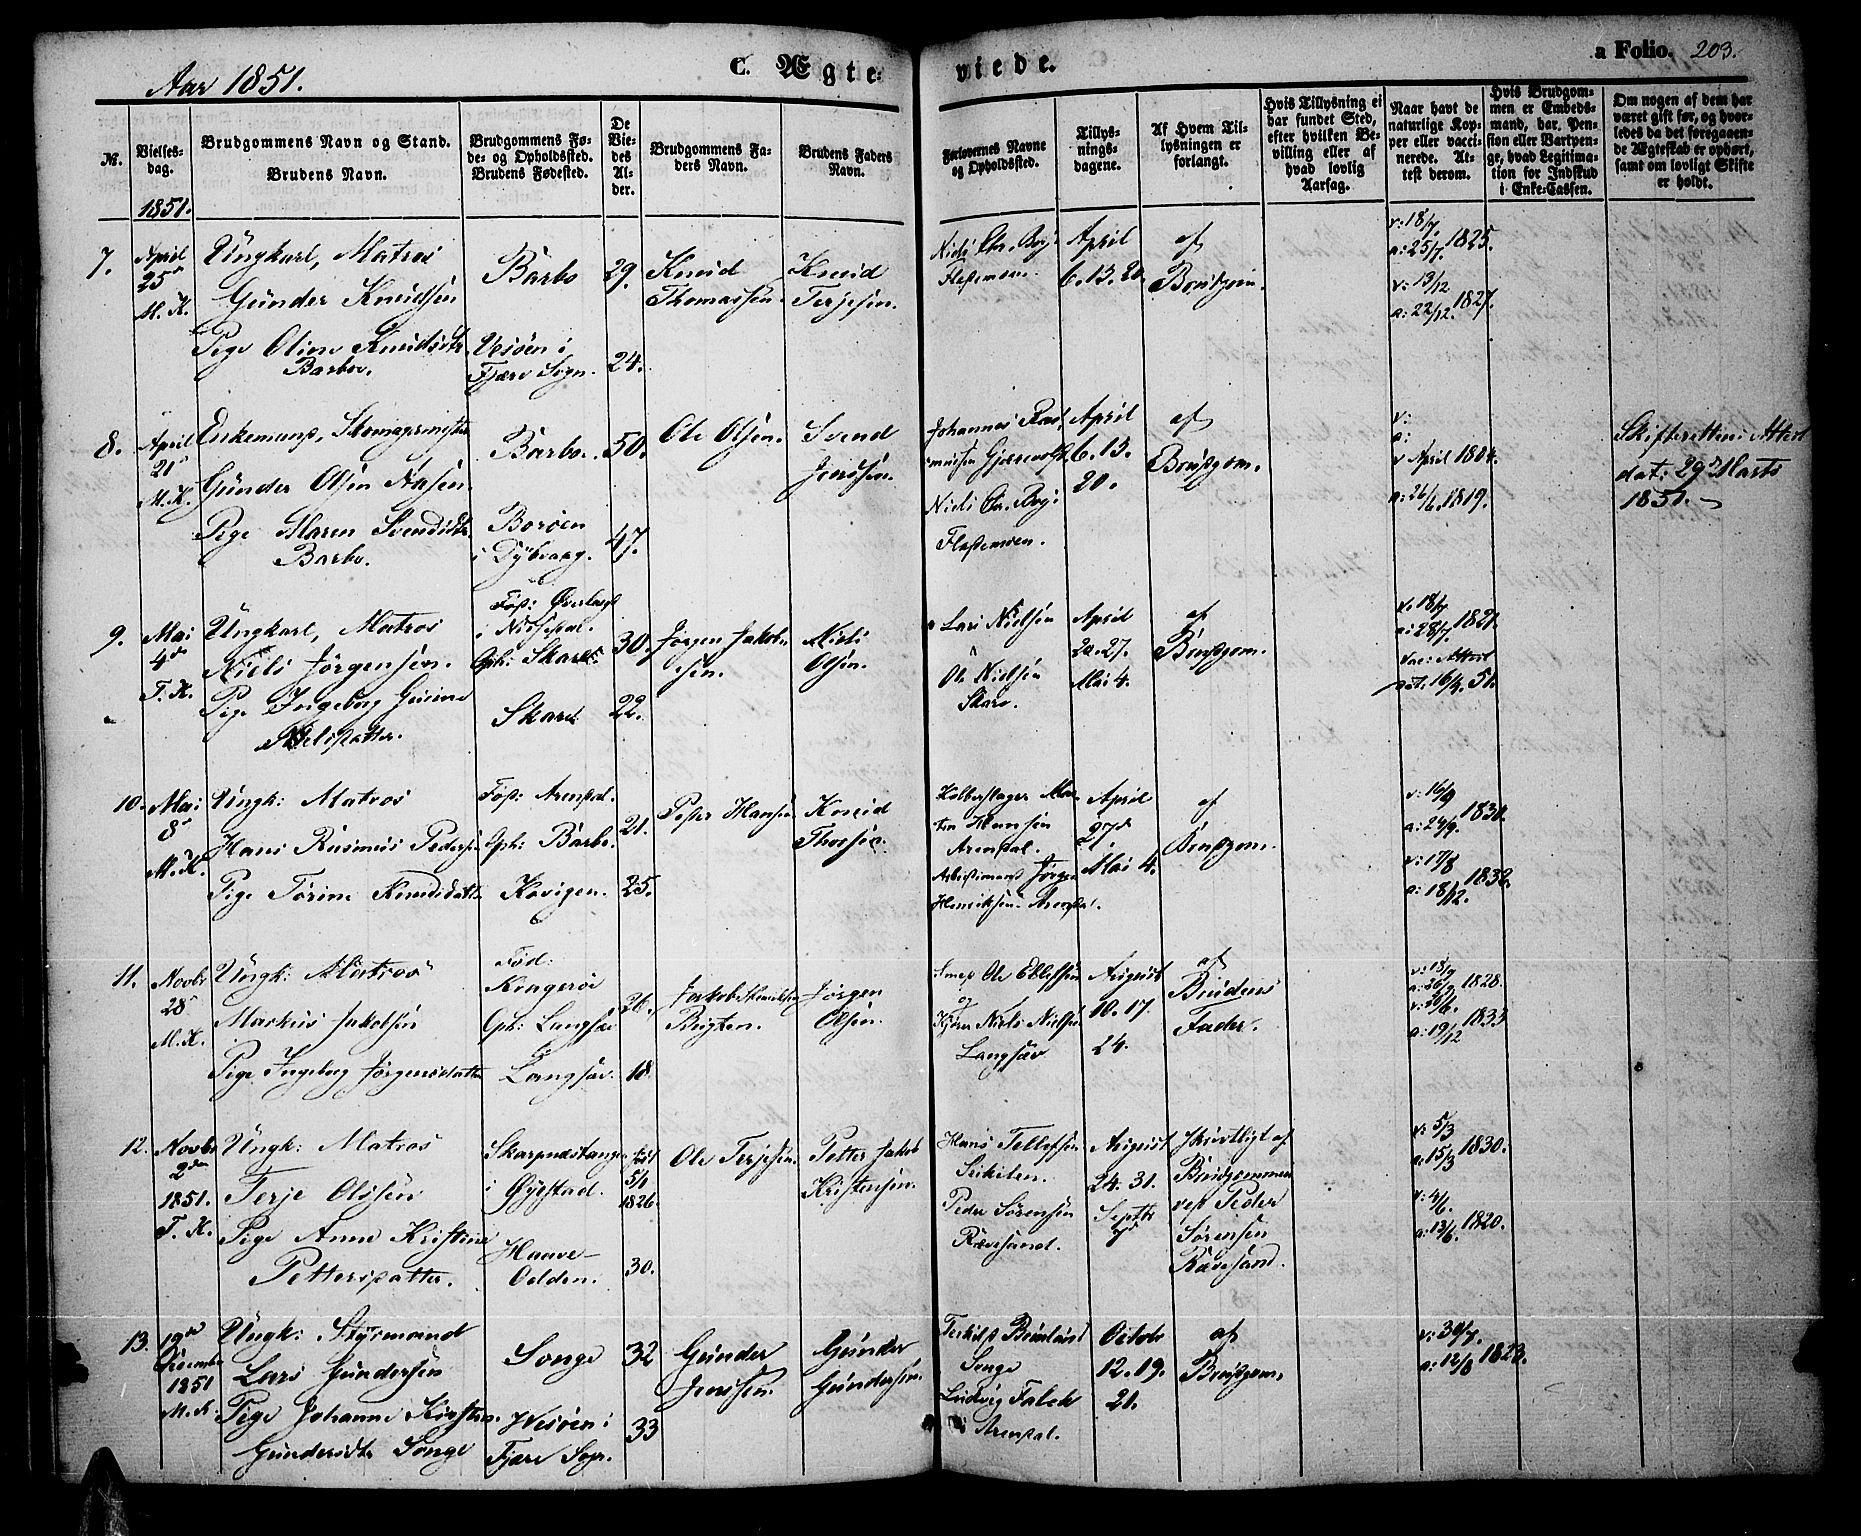 Aar 1851.
C. Ægte-
viede.
a Folio. 203.
№.
Vielses-
dag.
1851.
Brudgommens Navn og Stand.
Brudens Navn.
Brudgommens Fø-
de- og Opholdssted.
Brudens Fødested.
De
Vie-
des
Al-
der.
Brudgommens Fa-
ders Navn.
Brudens Faders
Navn.
Forlovernes Navne
og Opholdssted.
Tillys-
nings-
dagene.
Af Hvem Til-
lysningen er
forlangt.
Hvis Tillysning ei
har fundet Sted,
efter hvilken Be-
villing eller af
hvad lovlig
Aarsag.
Naar havt de
naturlige Kop-
per eller vacci-
nerede. At-
test derom.
Hvis Brudgom-
men er Embeds-
mand, har Pen-
sion eller Vartpen-
ge, hvad Legitima-
tion for Indskud
i Enke-Cassen.
Om nogen af dem har
været gift før, og hvor-
ledes da det foregaaen-
de Ægteskab er ophørt,
samt om lovligt Skifte
er holdt.
7.
April
25de
M. K.
Ungkarl, Matros
Gunder Knudsen
Pige Oline Knudsdtr
Barbo.
Barbo
Vesøen i
Fjære Sogn.
29.
24.
Knud
Thomassen.
Knud
Terjesen.
Niels Chr. Boj.
April
6. 13. 20.
af
Brudgom.
v: 18/7.
a: 25/7. 1825.
v: 13/12
a: 22/12. 1827.
8.
April
21de
M. K.
Enkemand, Skomagermester
Gunder Olsen Aasen.
Pige Maren Svendsdtr
Barbo.
Barbo.
Borøen
i Dybvaag.
50.
47.
Ole Olsen.
Svend
Jenssen.
Johannes Ras
mussen
Niels Chr. Boj.
April
6. 13.
20.
af
Brudgom.
v:
a:
v April 1804.
a: 26/6. 1819.
Skifterettens Attest
dat: 29de Marts
1851.
9.
Mai
4de
T. K.
Ungkarl, Matros
Niels Jørgensen.
Pige Ingeborg Gurine
Nielsdatter.
Fød:
i Nissedal.
Oph: Skare
Skare
30.
22.
Jørgen Jakob
sen.
Niels
Olsen.
Lars Nielsen
Ole Nielsen
Skare.
April
20. 27.
Mai 4.
af
Brudgom.
v. 18/7
a: 28/7. 1821.
Vac: Attest
dat. 16/4. 51.
10.
Mai
8de
M. K.
Ungk: Matros
Hans Rasmus Pedersen
Pige Torine Knudsdatter
Fød: Arendal.
Oph: Barbo.
Kovigen.
21.
25.
Peder Hansen
Knud
Thorsen.
Mor
ten Hansen
Arendal.
Arbeidsmand Jørgen
Henriksen Arendal.
April
27de
Mai 4.
af
Brudgom.
v: 16/9
a: 24/9. 1830.
v: 17/8
a: 18/12. 1832.
11.
Novbr
28de
M. K.
Ungk: Matros
Markus Jakobsen
Pige Ingeborg Jørgensdatter
Fød:
Kragerøe
Oph: Langsæe
Langsæe.
26.
18.
Jakob Henriksen
Bugten.
Jørgen
Olsen.
Smed Ole Ellefsen
og
Niels Nielsen
Langsæe
August
10. 17.
24.
af
Brudens
Fader.
v: 18/9
a: 26/9 1828.
v: 20/6.
a: 19/12 1833
12.
Novbr
2den
1851.
T. K.
Ungk: Matros
Terje Olssen
Pige Anne Kristine
Pettersdatter.
i Øyestad.
Haave-
Odden.
født
5/1
1826.
30.
Ole Terjesen.
Petter Jakob
Kristensen.
Hans Tellefsen
Peder Sørensen
Rævesand.
August
24. 31.
Septbr
7de
skriftligt af
Brudgommen
ved Peder
Sørensen
Rævesand.
v: 5/3
a: 15/3 1830.
v: 4/6.
a: 13/6. 1820.
13.
19de
Decembr
1851
M. K.
Ungk: Styrmand
Lars Gundersen
Pige Johanne Kirstine
Gundersdtr Songe
Songe
Wesøen i
Fjære Sogn.
32
33
Gunder
Jenssen.
Gunder
Gundersen.
Songe
Ludvig Falck
Arendal.
Octobr
12. 19.
21.
af
Brudgom.
v: 30/7.
a: 12/8 1823.